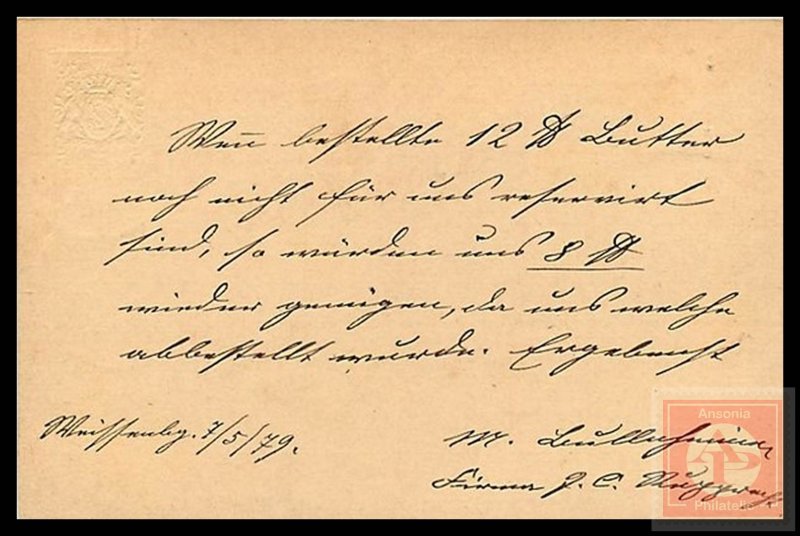 Wenn bestellte 12 ℔ Butter
noch nicht für uns reservirt
sind, so würden uns 8 ℔
wieder genügen, da uns welche
abbestellt wurde. Ergebenst
Weissenbg. 7/5/79.
M.
Firma J. C. Rupprecht
Ansonia
Philatelie